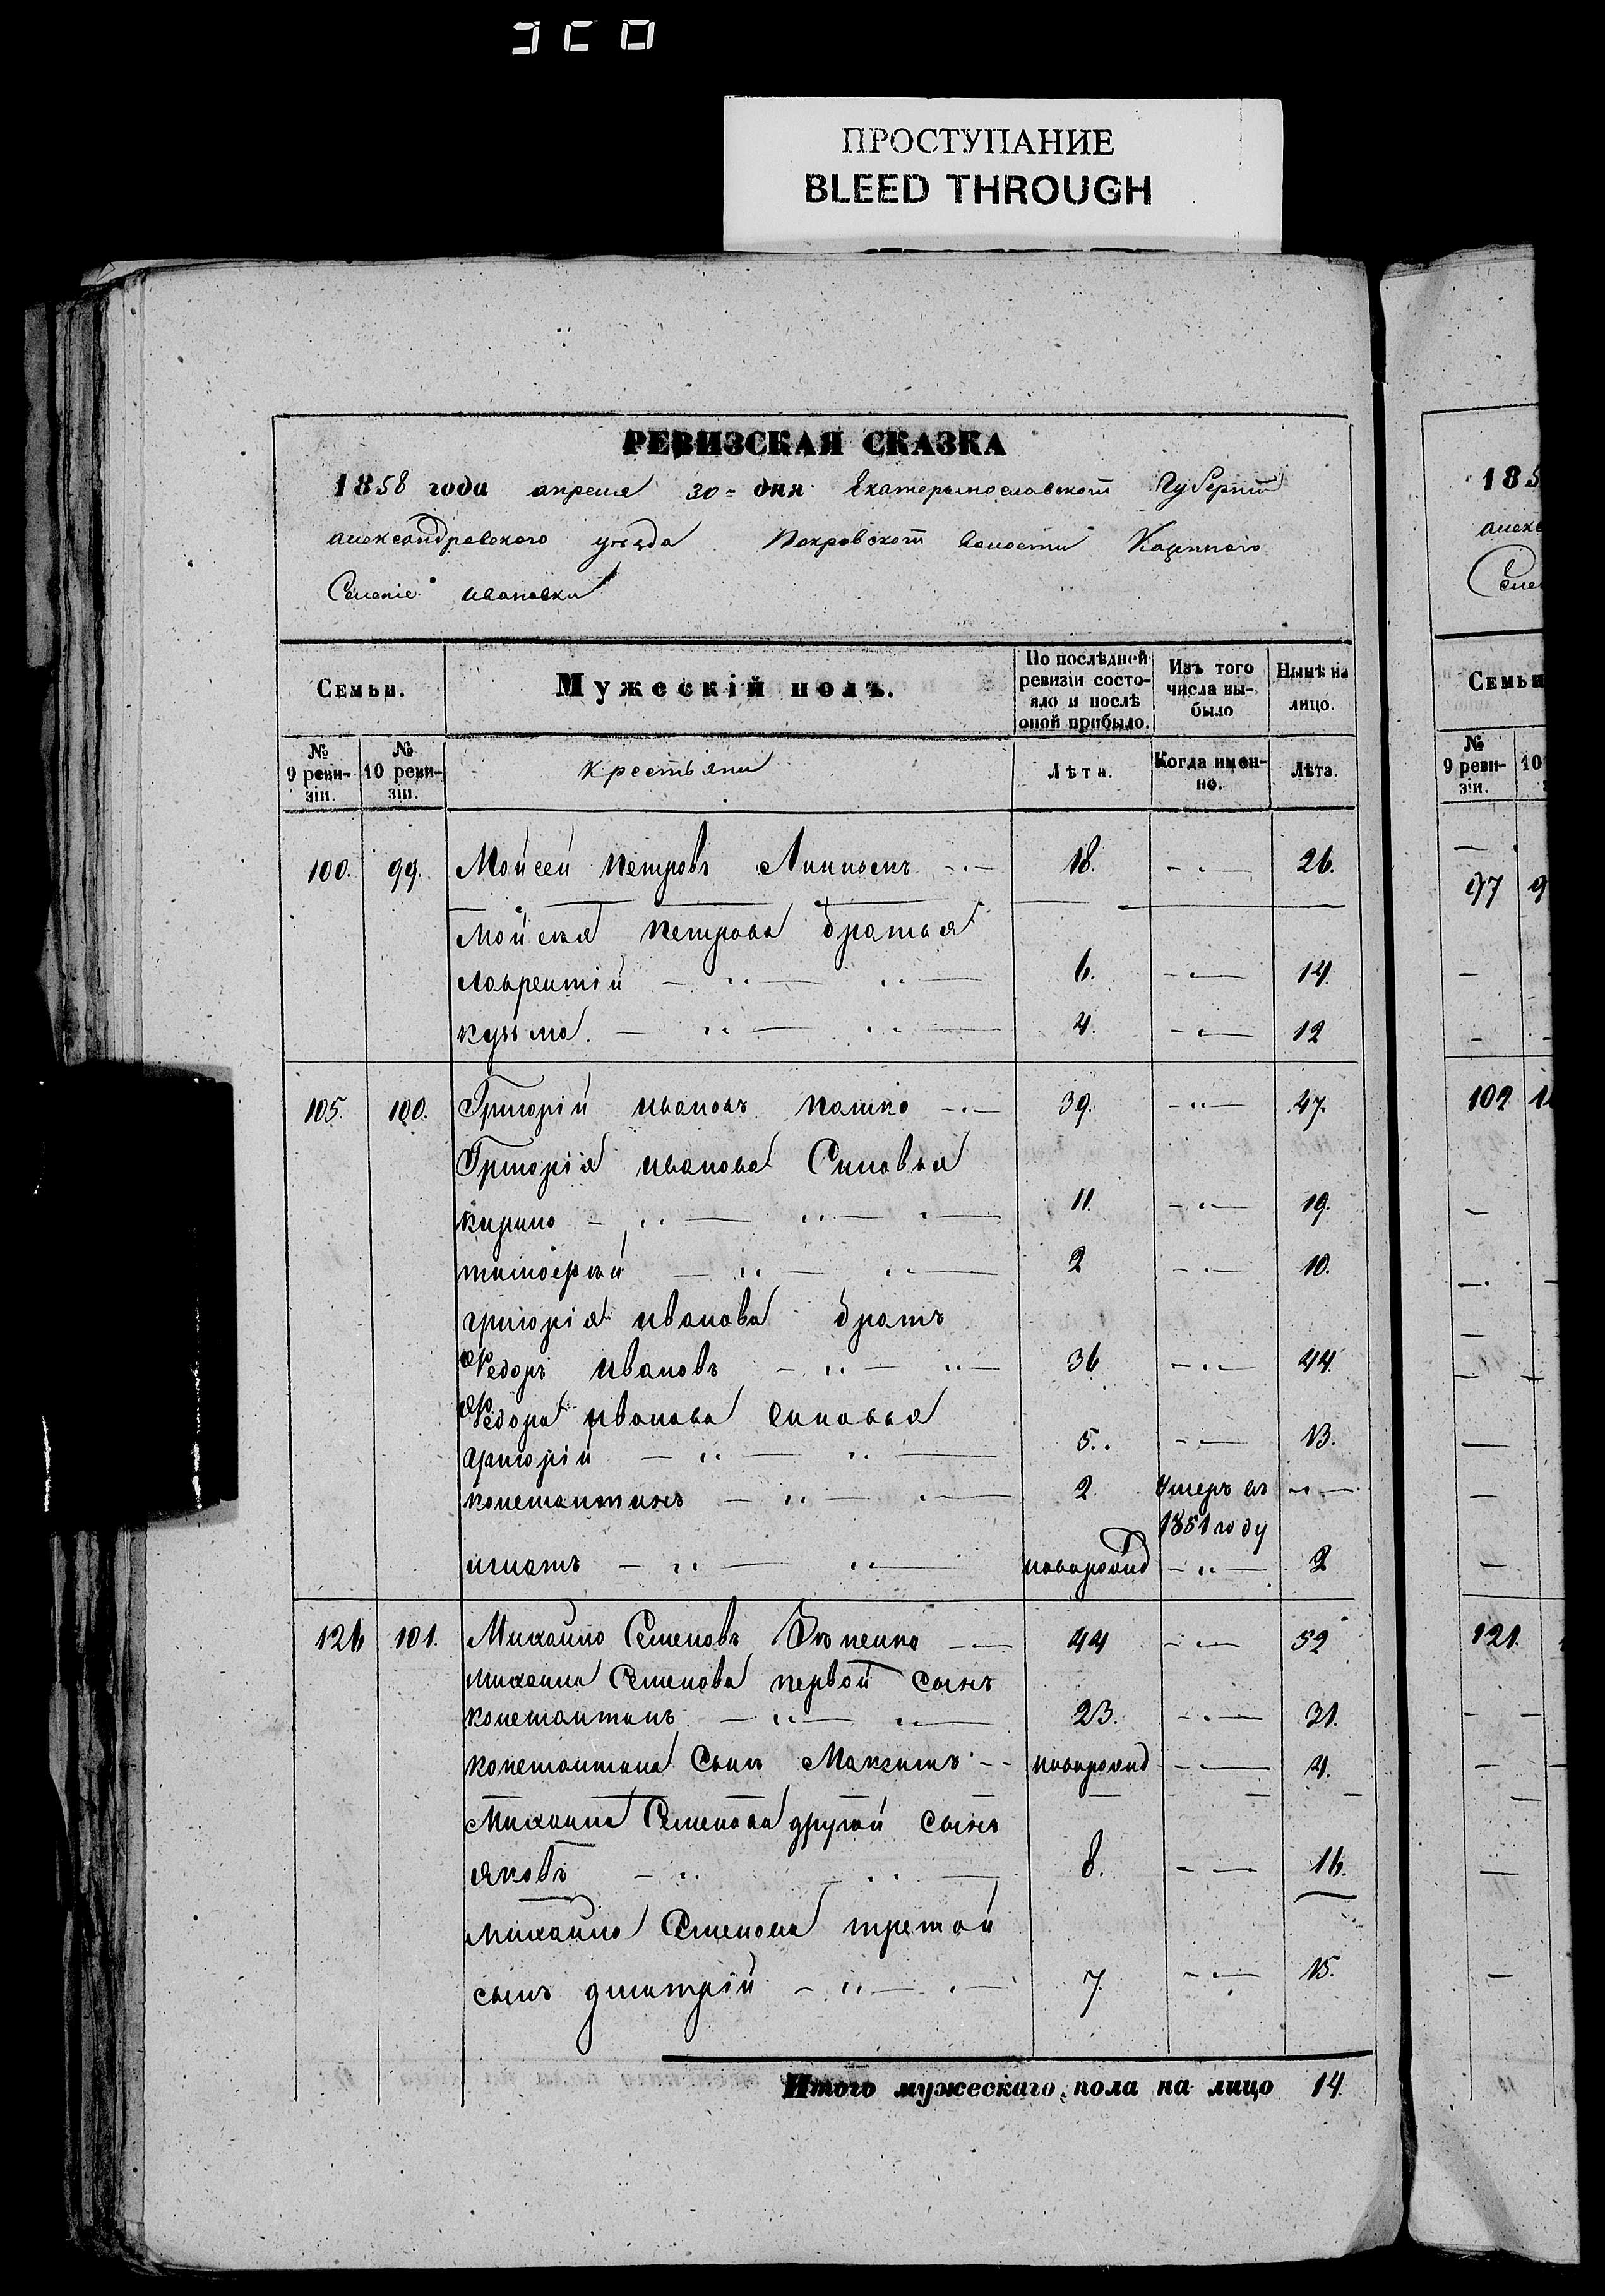 ПРОСТУПАНИЕ
BLEED THROUGH
РЕВИЗСКАЯ СКАЗКА
1858 года апреля 30 = дня Екатеринославской Губернии
александровского уезда Покровской волости Казенного
Селение Ивановки
Семьи.
Мужескій полъ.
По послѣдней ревизіи состояло и послѣ оной прибыло.
Изъ того числа выбыло
Нынѣ на лицо.
№ 9 ревизіи.
№ 10 ревизіи.
Крестьяни
Лѣта.
Когда именно.
Лѣта.
100. 99. Мойсей петровъ 18. 26.
Мойсея петрова братья
лаврентій 6. 14.
кузьма. 4. 12
105. 100. Григорій ивановъ 39. 47.
Григорія иванова Синовья
кирило 11. 19.
тимофей 2 10.
григорія иванова братъ
Федоръ ивановъ 36 44.
Федора иванова синовья
григорій 5. 13.
константинъ 2 Умеръ въ
1851 году
игнатъ новорожд 2
126 101. Михайло Семеновъ 44 52
михаила Семенова первой сынъ
константинъ 23. 31.
константина Сынъ Максимъ новорожд 4.
Михаила Семенова другой сынъ
яковъ 8. 16.
михайла Семенова третой
сынъ дмитрій 7. 15.
Итого мужескаго пола на лицо 14.
185
Семьи
№ 9 ревизіи.
10
97
102
121.